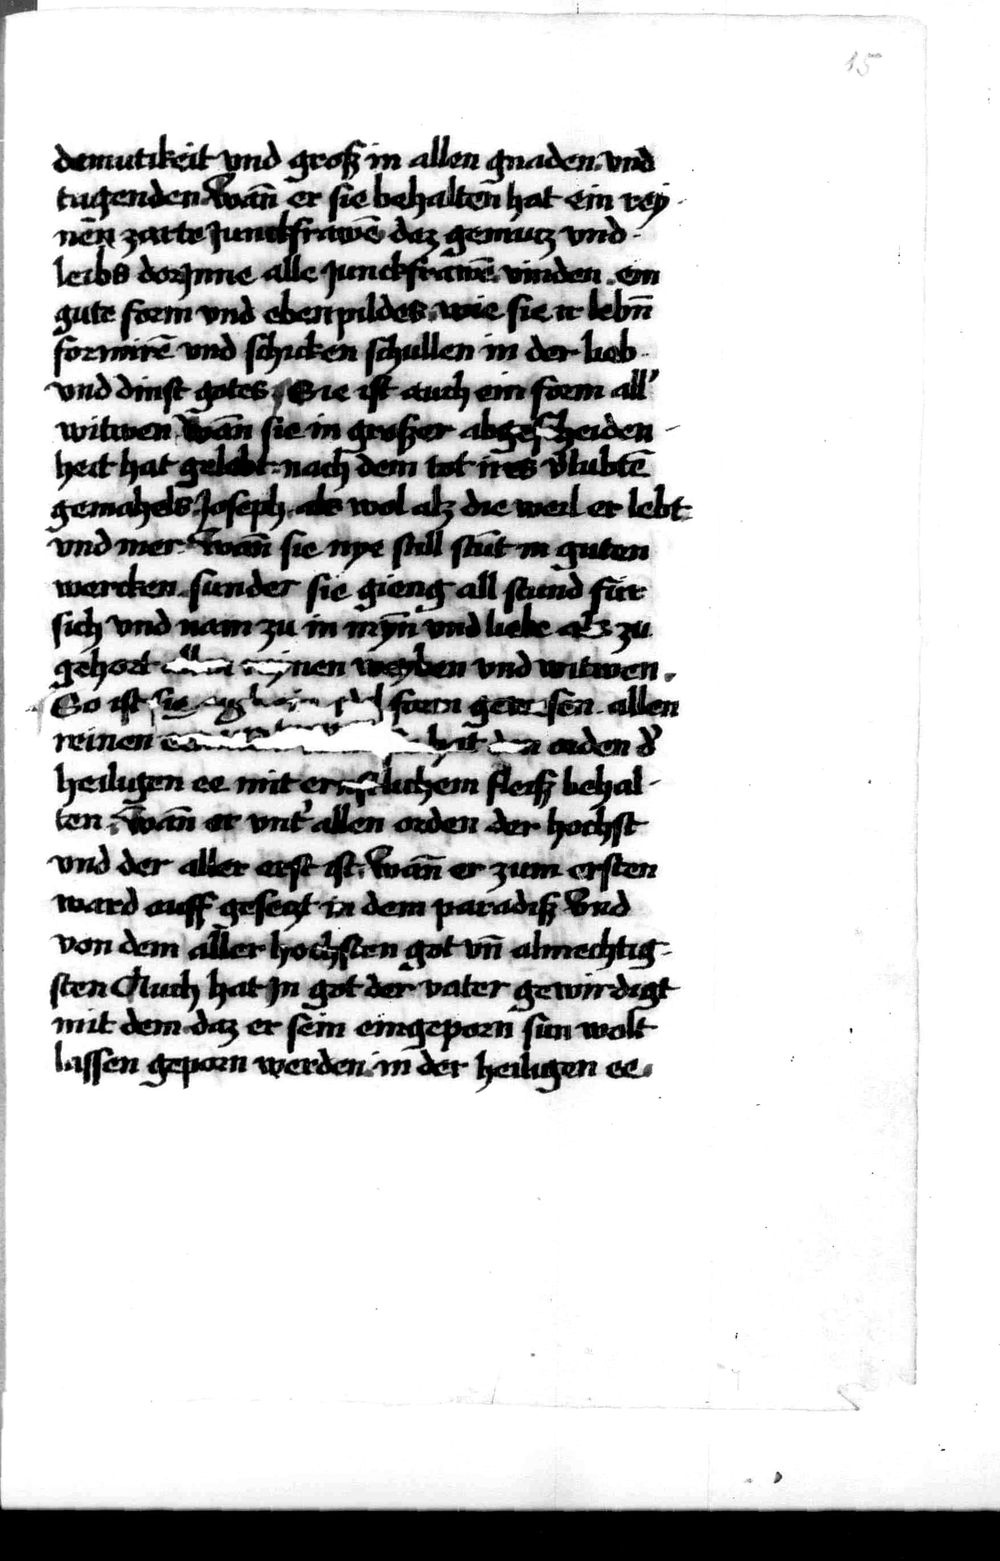 15
demutikeit vnd groß in allen gnaden vnd
tugenden. Wan̄ er sie behalten̄ hat ein rey
nen zarte Junckfrawē daz gemutz vnd
leibs dorJnne alle junckfrawē vinden. ein
gute form vnd ebenpildes. wie sie ir lebn̄
formirē vnd schicken schullen in der lieb
vnd dinst gotes. Sie ist auch ein form all'
witwen. Wan̄ sie in großer abgescheiden
heit hat gelebt. nach dem tot ires v̉lubtē
gemahels Joseph. als wol alz die weil er lebt
vnd mer. Wan̄ sie nye still stūt in guten
wercken. sunder sie gieng all stund für
sich vnd nam zu in myn̄ vnd liebe als zu
gehort allen nen weyben vnd witwen.
So ist sie form gewesen. allen
reinen orden d'
heiligen ee mit ernstlichem fleiß behal
ten. Wan̄ er vnt' allen orden der hochst
vnd der aller erst ist. Wan̄ er zum ersten
ward auff gesetzt in dem paradiß Vnd
von dem aller hochsten got vn̄ almechtig
sten Auch hat Jn got der vater gewirdigt
mit dem. daz er sein eingeporn sun wolt
lassen geporn werden. in der heiligen ee.